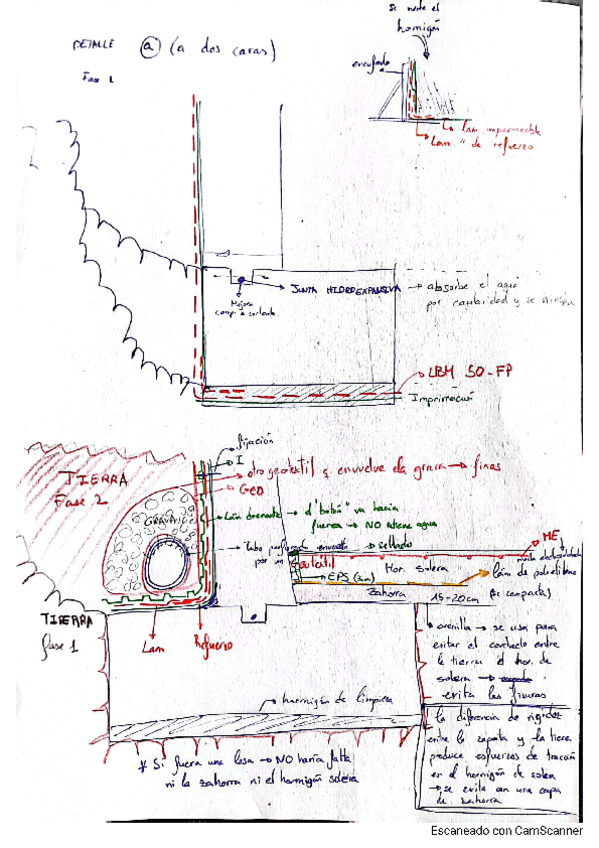 DETALLE (a) (a dos caras)
Fase 1
Si verte el
hormigón
encofrado
Lam impermeable
Lam " de refuerzo
JUNTA HIDROEXPANSIVA → absorbe el agua
por capilaridad y se
Mejora
comp. a cortante
LBM 50-FP
Imprimación
fijación
I
otro geotextil q envuelve la grava → finos
GEO
TIERRA
Fase 2
GRAVA
Lám drenante → el "bobú" va hacia
fuera → NO retiene agua
Tubo envuelto
por un geotextil
sellado
ME
Hor. solera
EPS (2cm)
lám de polietileno
Zahorra 15-20cm (se compacta)
TIERRA
Fase 1
Lam
Refuerzo
hormigón de limpieza
* Si fuera una losa → NO haría falta
ni la zahorra ni el hormigón solera
* arenilla → se usa para
evitar el contacto entre
la tierra y el hor. de
solera →
evita las fisuras
* la diferencia de rigidez
entre la zapata y la tierra
produce esfuerzos de tracción
en el hormigón de solera
→ se evita con una capa
de zahorra
Escaneado con CamScanner